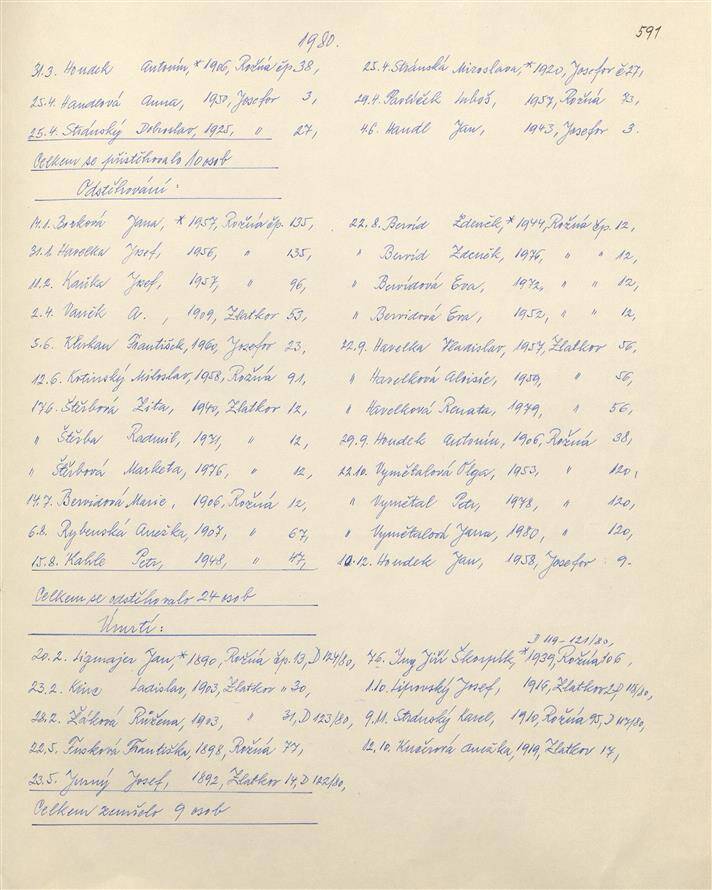 1980.
591
31.3. Houdek Antonín, * 1906, Rožná čp. 38,
25.4. Handlová Anna, 1950, Josefov 3,
25.4. Stránský Dobroslav, 1925, " 27,
25.4. Stránská Miroslava, * 1920, Josefov č 27,
29.4. Pavlíček Luboš, 1957, Rožná 73,
4.6. Handl Jan, 1943, Josefov 3.
Celkem se přistěhovalo 10 osob
Odstěhování:
14.1. Borková Jana, * 1957, Rožná čp. 135,
31.1. Havelka Josef, 1956, " 135,
11.2. Kaňka Josef, 1957, " 96,
2.4. Vaněk A., 1909, Zlatkov 53,
5.6. František, 1960, Josefov 23,
12.6. Kotinský Miloslav, 1958, Rožná 91,
17.6. Štěrbová Zita, 1940, Zlatkov 12,
" Štěrba Radmil, 1971, " 12,
" Štěrbová Marketa, 1976, " 12,
14.7. Bervidová Marie, 1906, Rožná 12,
6.8. Rybenská Anežka, 1907, " 67,
15.8. Kahle Petr, 1948, " 47,
22.8. Bervid Zdeněk, * 1944, Rožná čp. 12,
" Bervid Zdeněk, 1976, " " 12,
" Bervidová Eva, 1972, " " 12,
" Bervidová Eva, 1952, " " 12,
22.9. Havelka Vladislav, 1957, Zlatkov 56,
" Havelková Aloisie, 1959, " 56,
" Havelková Renata, 1979, " 56,
29.9. Houdek Antonín, 1906, Rožná 38,
22.10. Vymětalová Olga, 1953, " 120,
" Vymětal Petr, 1978, " 120,
" Vymětalová Jana, 1980, " 120,
10.12. Houdek Jan, 1958, Josefov 9.
Celkem se odstěhovalo 24 osob
Úmrtí:
20.2. Ligmajer Jan, * 1890, Rožná čp. 13, D 124/80,
23.2. Kinc Ladislav, 1903, Zlatkov " 30,
28.2. Žáková Růžena, 1903, " 31, D 123/80,
22.5. Fusková Františka, 1898, Rožná 77,
23.5. Jurný Josef, 1892, Zlatkov 14, D 122/80,
D 119-121/80,
7.6. Ing Jiří Škorpík, * 1939, Rožná 106,
1.10. Lipovský Josef, 1914, Zlatkov 28 D 118/80,
9.11. Stránský Karel, 1910, Rožná 95, D 117/80,
12.10. Kučerová Anežka, 1919, Zlatkov 17,
Celkem zemřelo 9 osob